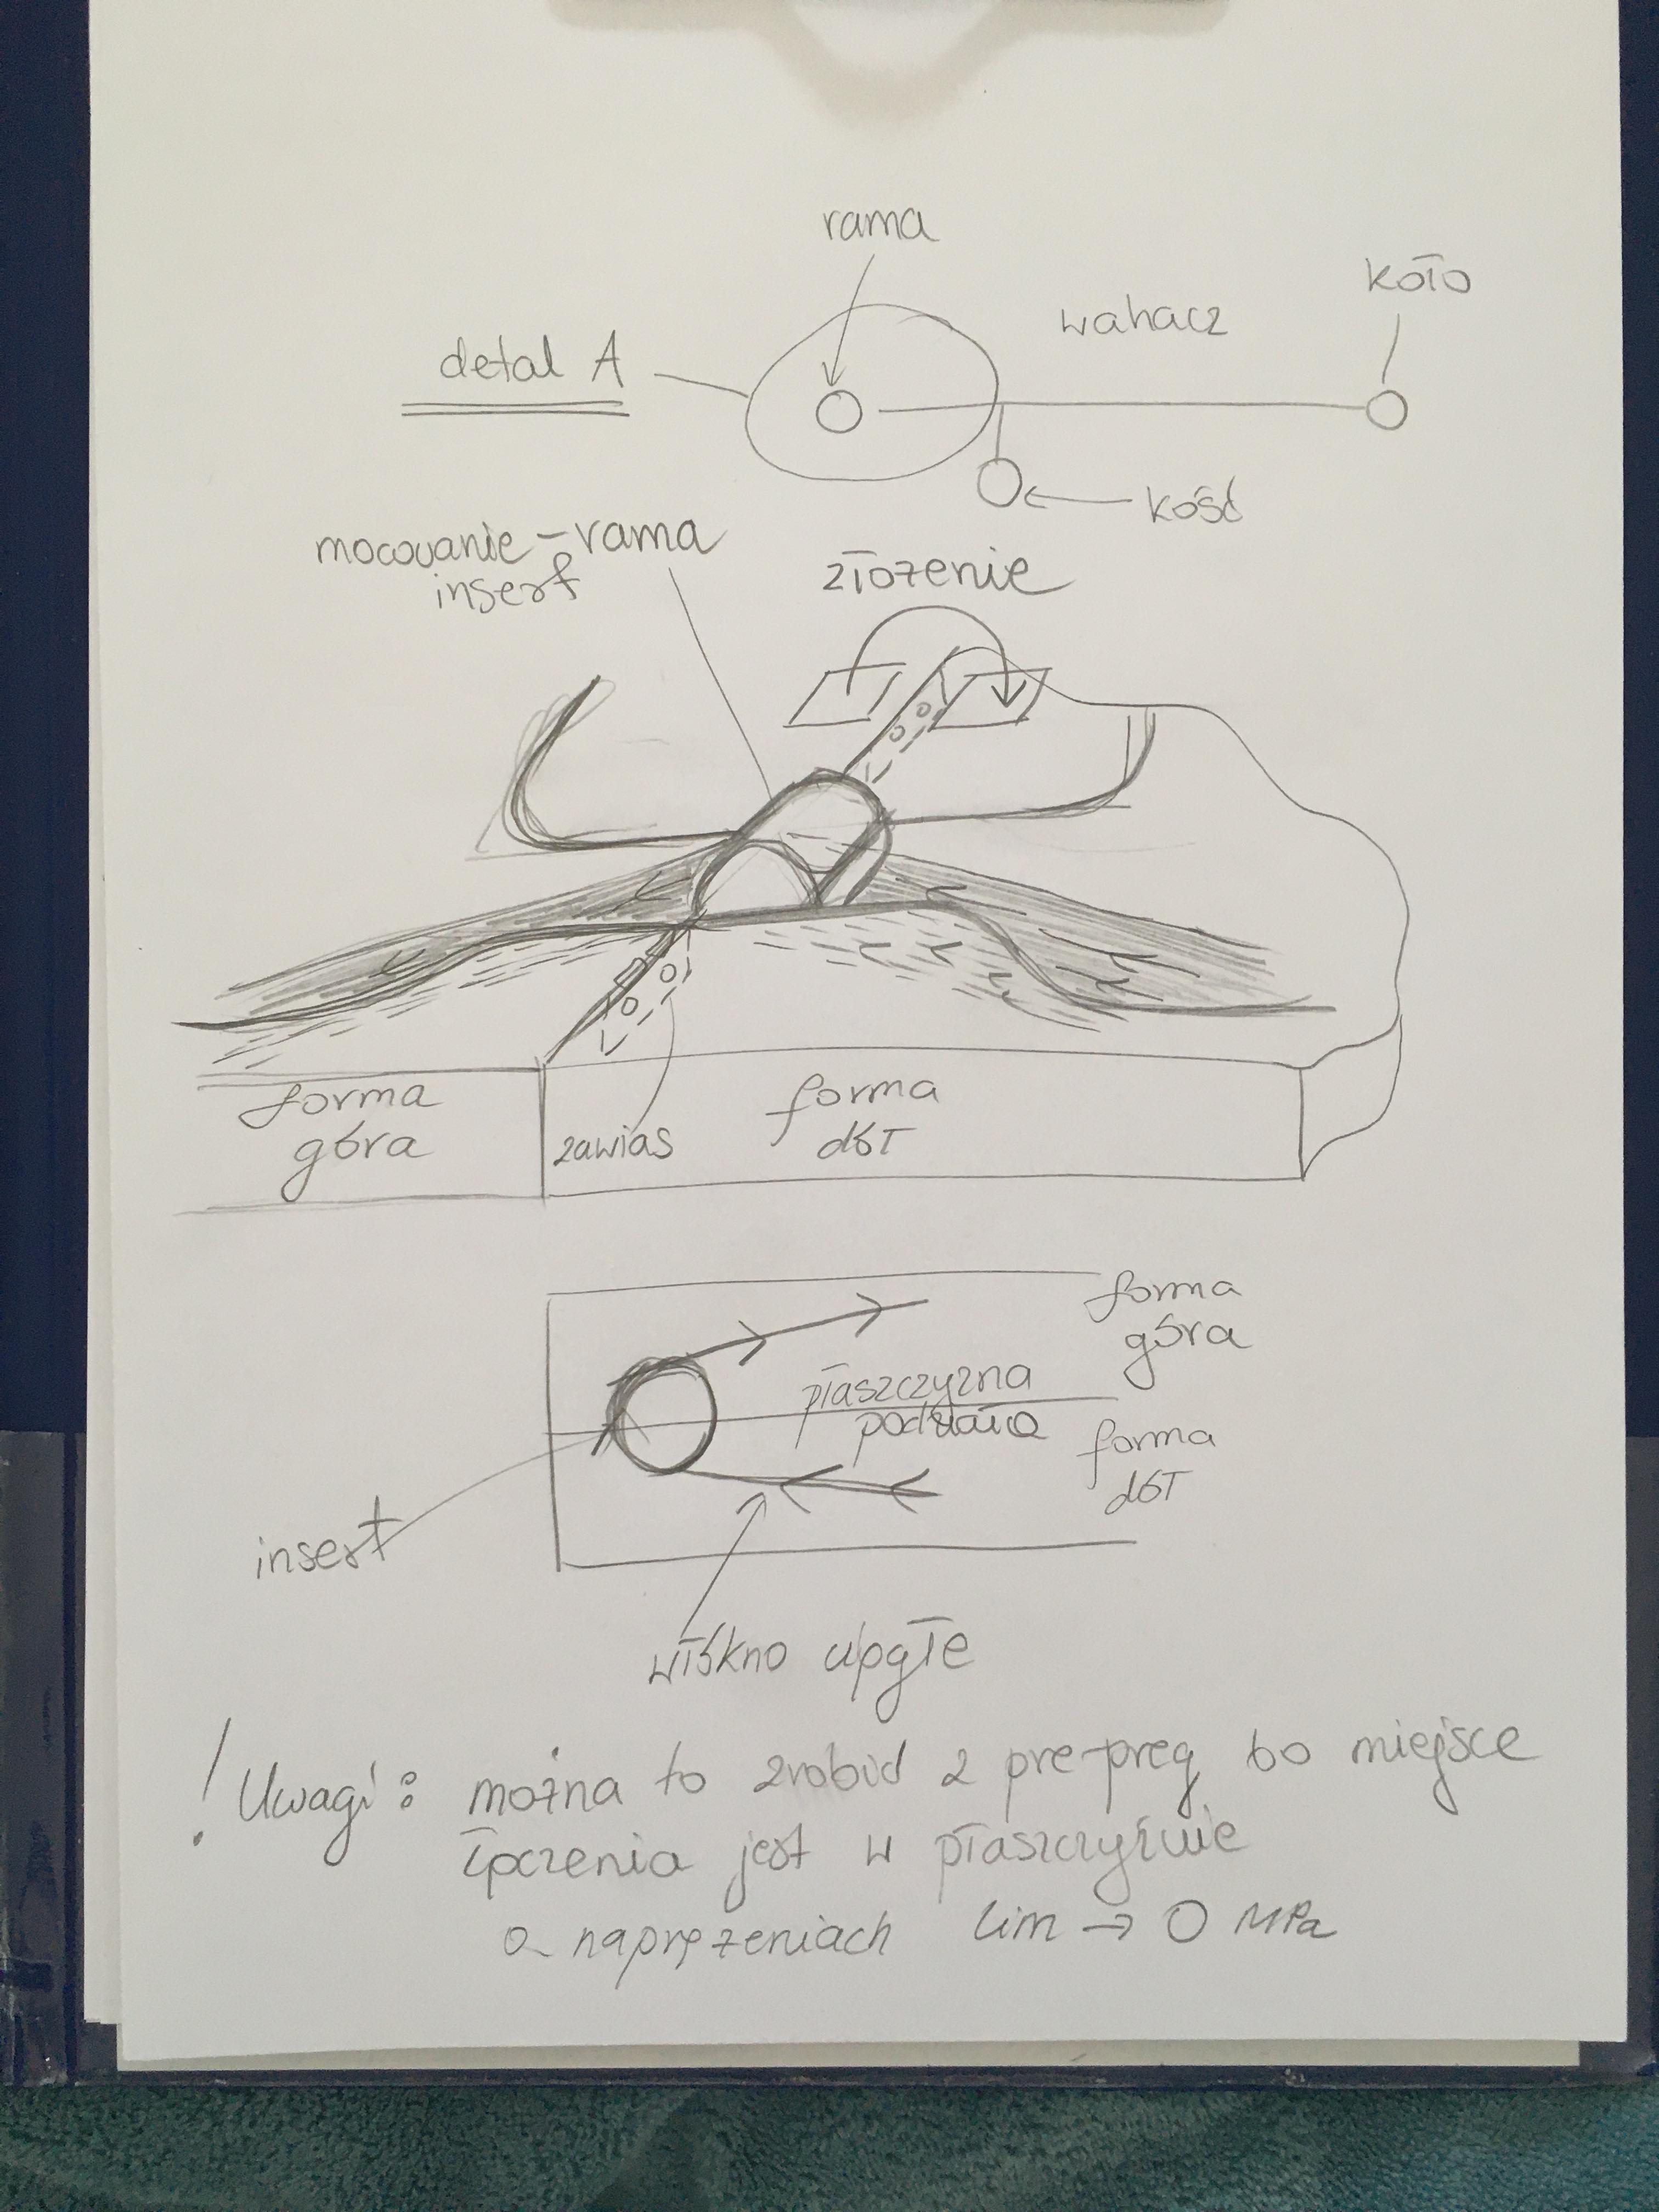 rama
koło
wahacz
detal A
kość
mocowanie - rama
insert
złożenie
forma
góra
zawias
forma
dół
forma
góra
płaszczyzna
podziału
forma
dół
insert
włókno ciągłe
! Uwagi: można to zrobić z pre-preg bo miejsce
łączenia jest w płaszczyźnie
o naprężeniach lim → 0 MPa